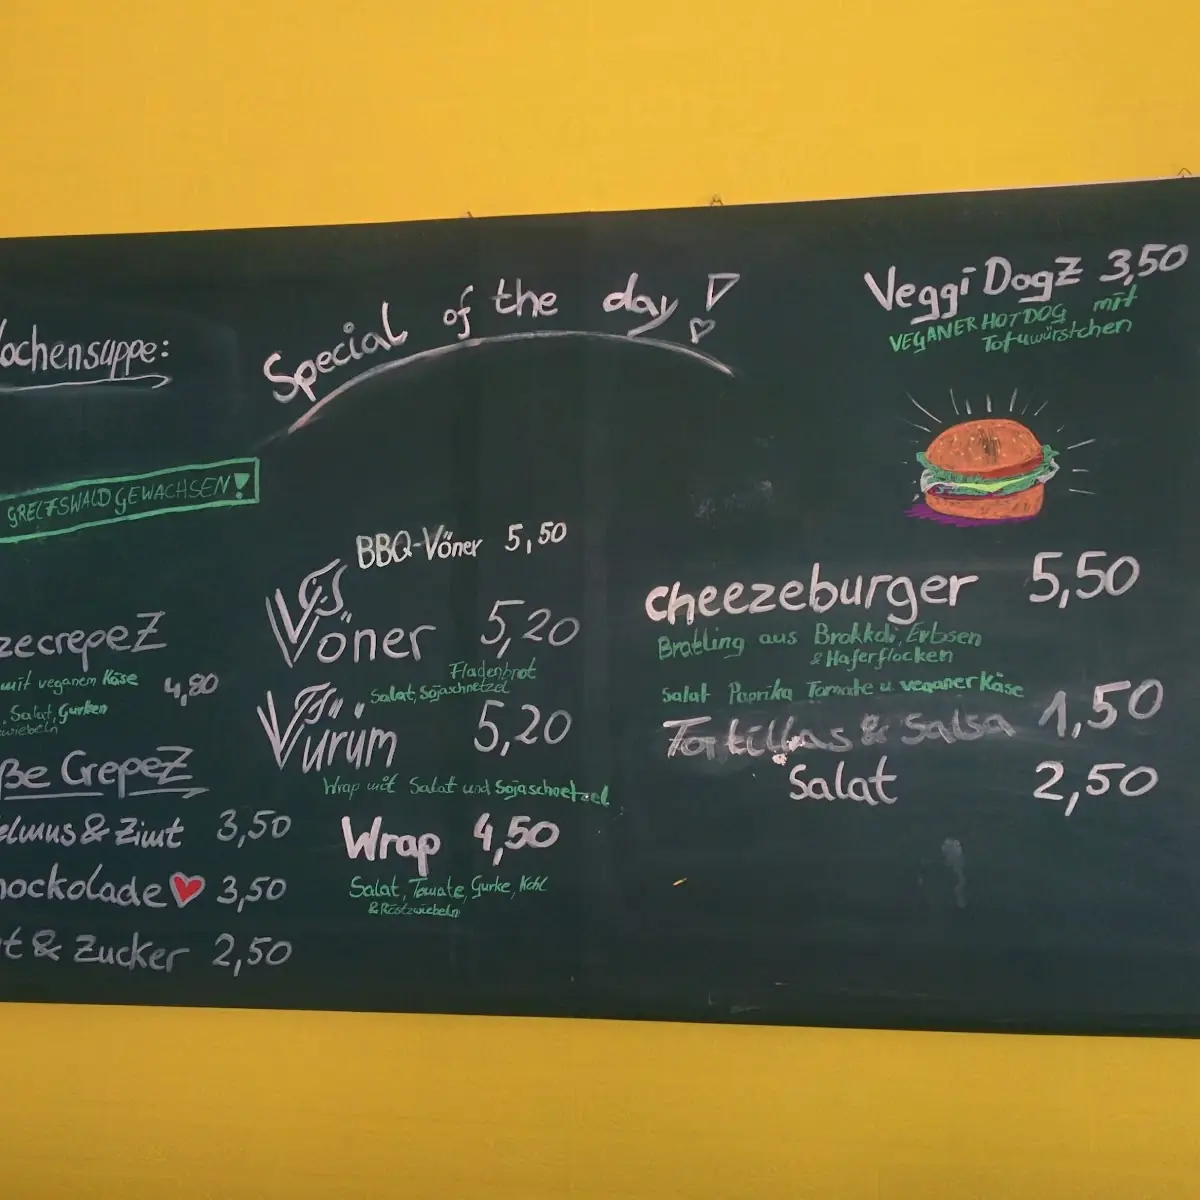 Wochensuppe:
GREIFSWALD GEWACHSEN!
zecrepeZ
mit veganem Käse 4,80
Salat, Gurken
wiebeln
ße CrepeZ
elmus & Zimt 3,50
hockolade 3,50
t & Zucker 2,50
Special of the day
BBQ-Vöner 5,50
Vöner 5,20
Fladenbrot
Salat, Sojaschnetzel
Vürüm 5,20
Wrap mit Salat und Sojaschnetzel
Wrap 4,50
Salat, Tomate, Gurke, Kohl
& Röstzwiebeln
Veggi DogZ 3,50
VEGANER HOTDOG mit
Tofuwürstchen
cheezeburger 5,50
Bratling aus Brokkoli, Erbsen
& Haferflocken
Salat Paprika Tomate u. veganer Käse
Tortillas & Salsa 1,50
Salat 2,50